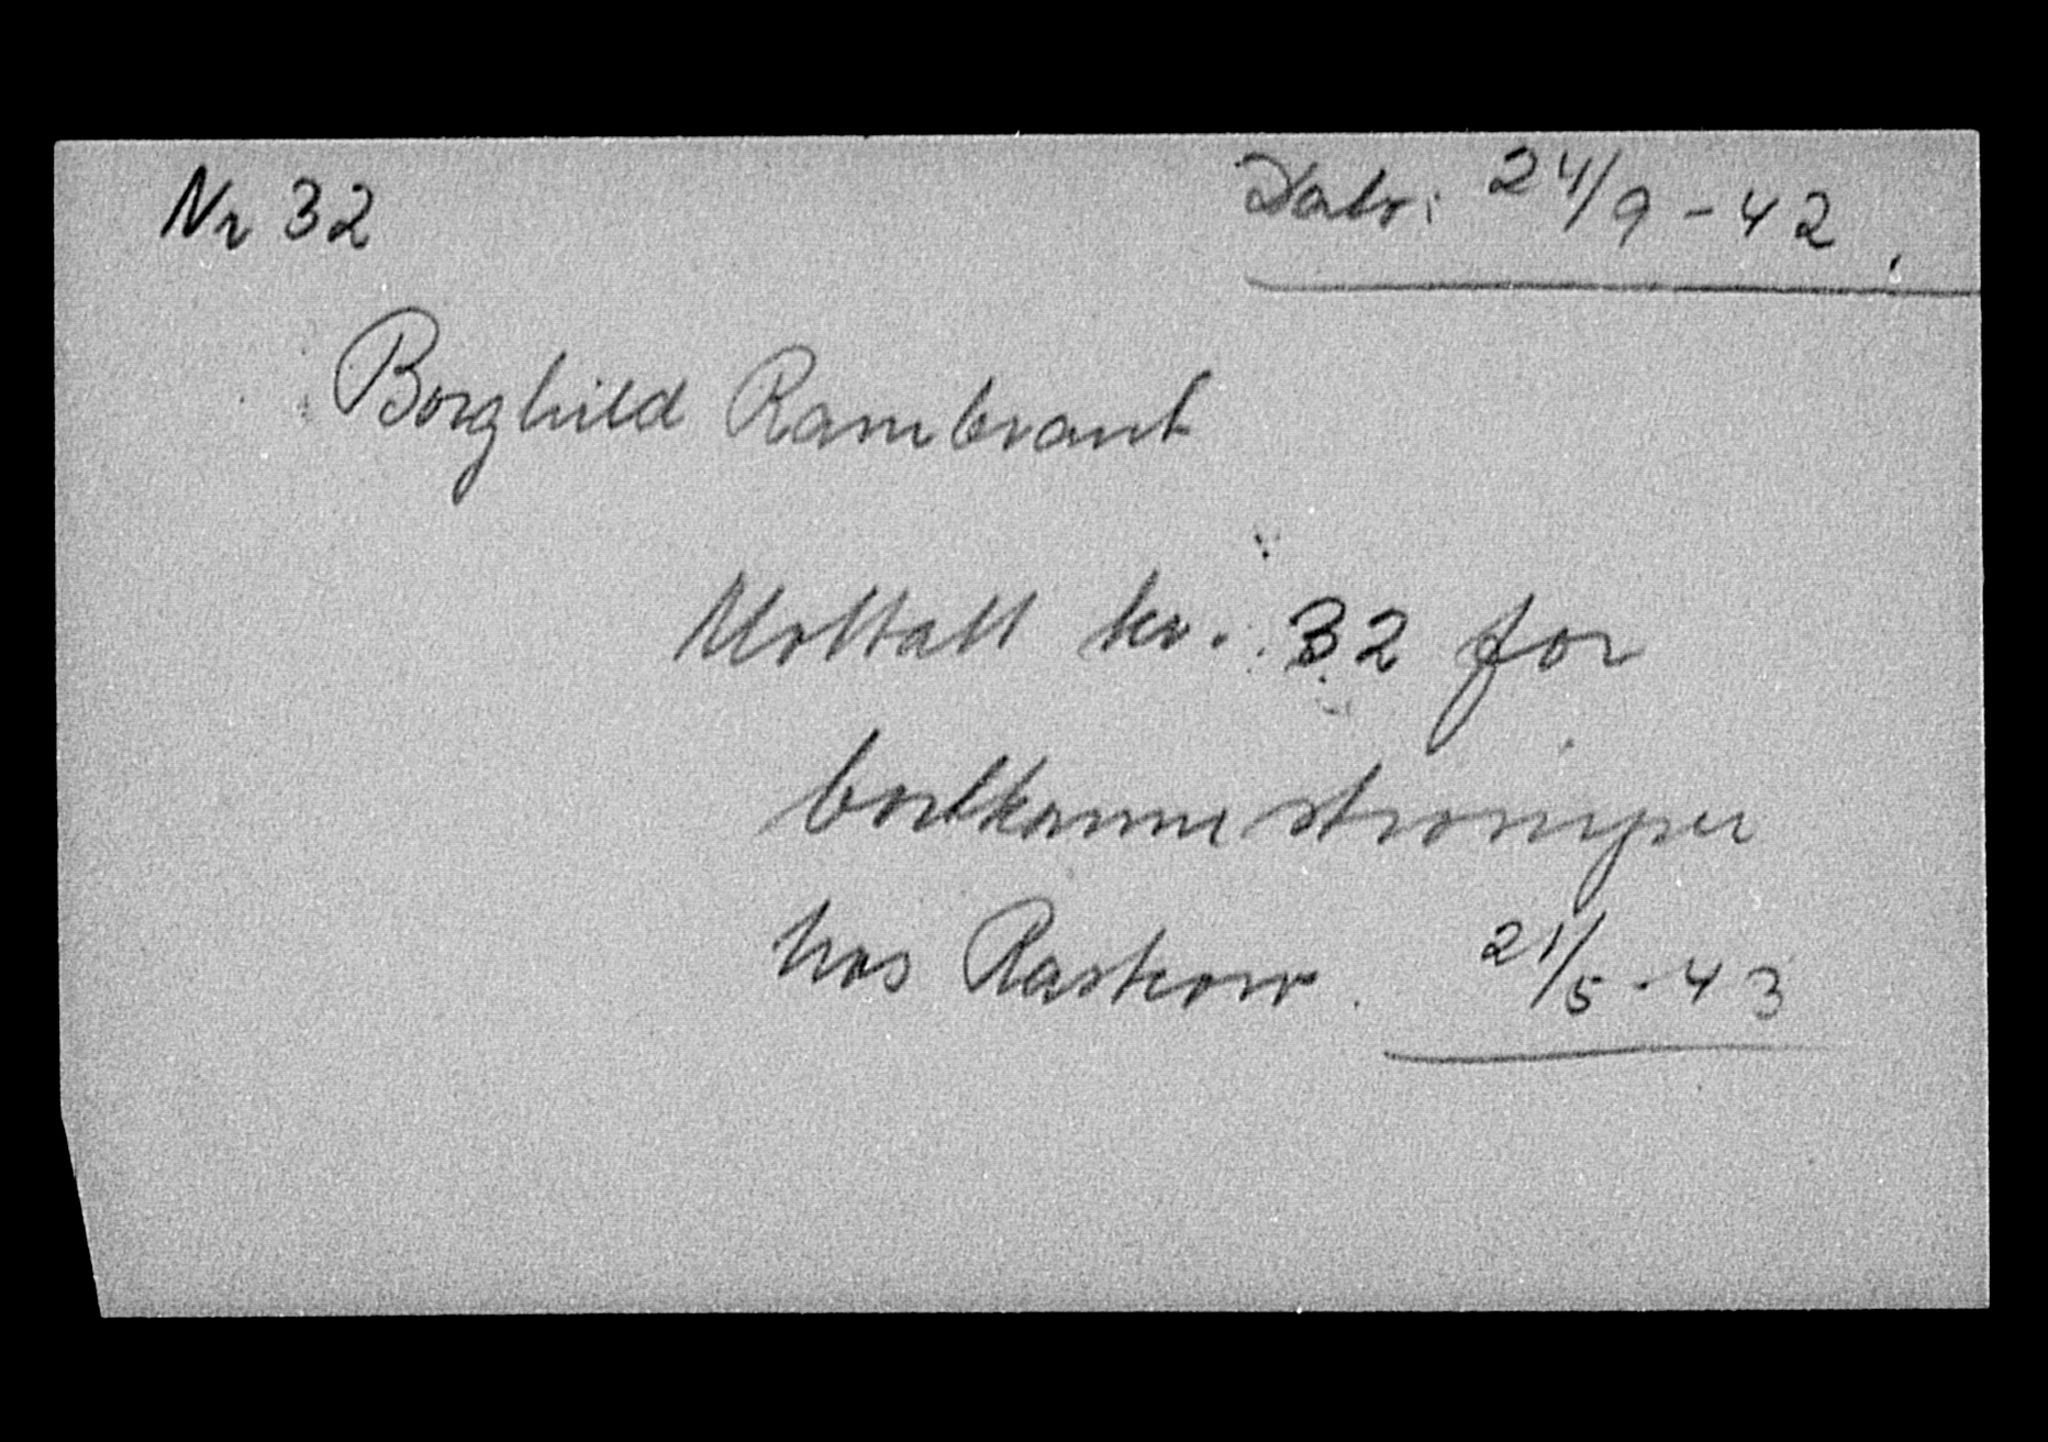 Nr 32
Dato: 24/9 - 42.
Borghild Rambrant
Mottatt kr. 32 for
bortkomne strømper
hos Raskow. 21/5 - 43